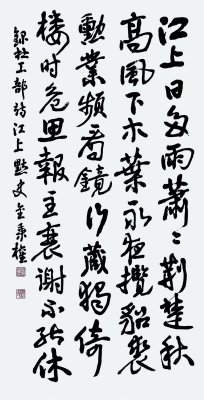 江上日多雨蕭〻荊楚秋
高風下木葉永夜攬貂裘
勳業頻看鏡行藏獨倚
樓時危思報主衰謝不能休
錄杜工部詩江上 史金秉權